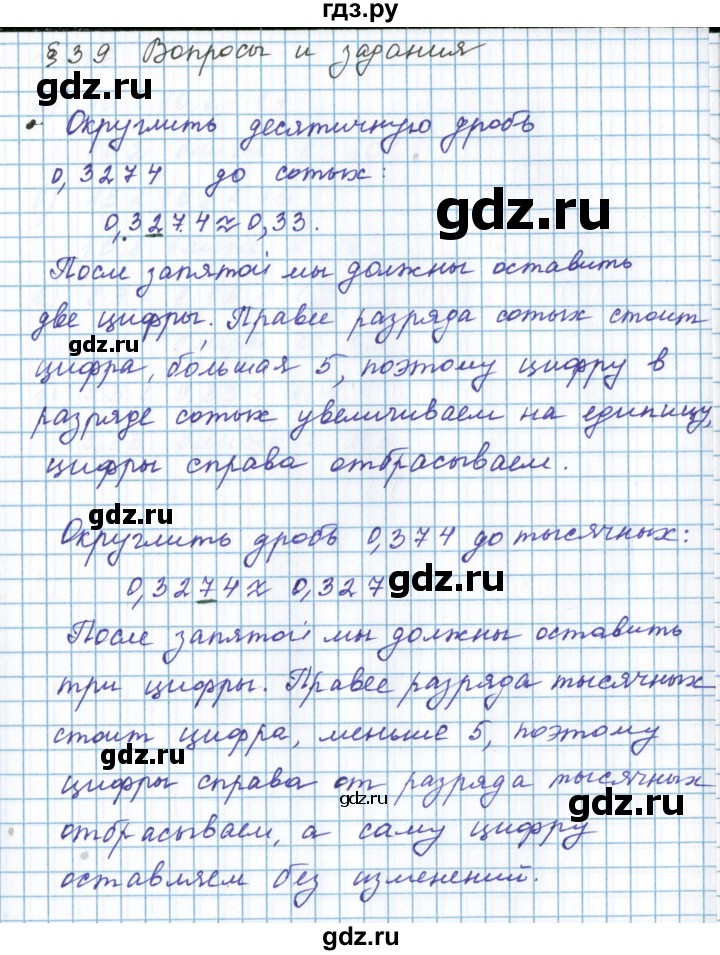 гдз.ру
§ 39 Вопросы и задания
gdz.ru
Округлить десятичную дробь
0,3274 до сотых:
gdz.ru
0,3274 ≈ 0,33.
После запятой мы должны оставить
две цифры, Правее разряда сотых стоит
gdz.ru
цифра, большая 5, поэтому цифру в
разряде сотых увеличиваем на единицу,
цифры справа отбрасываем.
gdz.ru
Округлить дробь 0,374 до тысячных:
0,3274 ≈ 0,327
gdz.ru
После запятой мы должны оставить
три цифры. Правее разряда тысячных
стоит цифра, меньше 5, поэтому
gdz.ru
цифры справа от разряда тысячных
gdz.ru
gdz.ru
отбрасываем, а саму цифру
оставляем без изменений.
gdz.ru